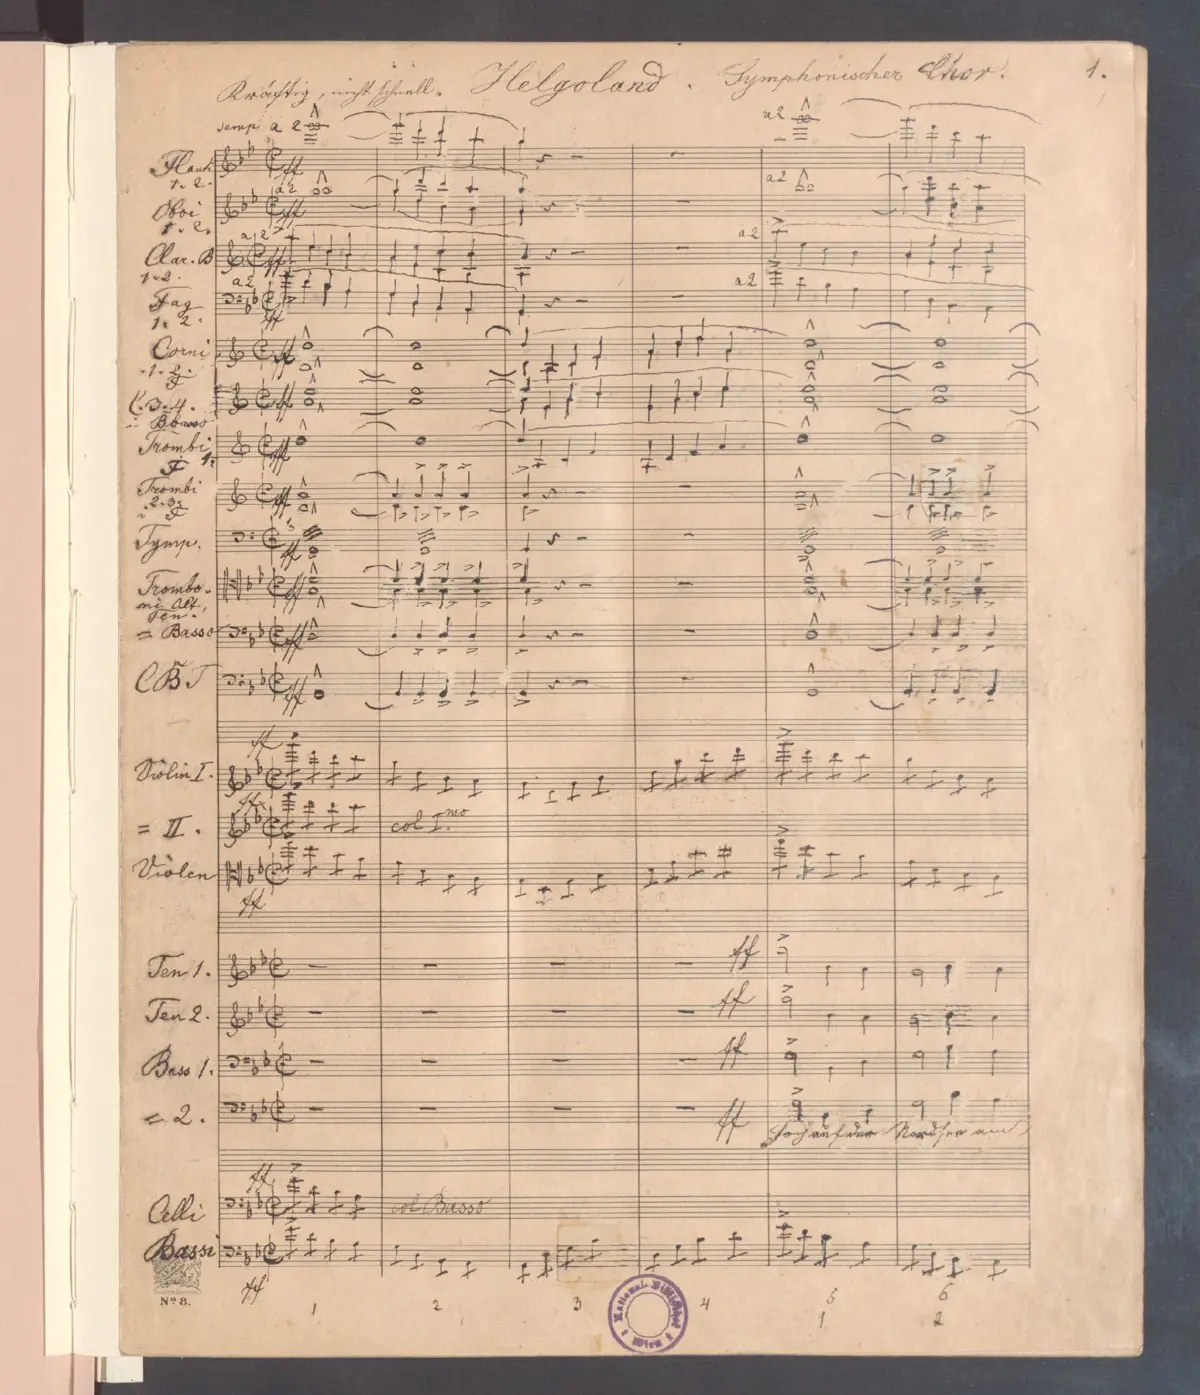 Kräftig, nicht schnell. Helgoland. Symphonischer Chor. 1.
semp. a 2 a 2
Flauti ff
1. 2.
a 2 a 2
Oboi ff
1. 2.
a 2 a 2
Clar. B ff
1. 2.
a 2 a 2
Fag ff
1. 2.
Corni ff
1. 2.
F
C. 3. 4. ff
B basso
Trombi ff
F 1.
Trombi ff
2. 3.
F
Tymp. ff
Trombo- ff
ni Alt,
Ten.
= Basso ff
CBT ff
ff
Violin I.
ff
= II. col I.mo
Violen
ff
Ten 1. ff
Ten 2. ff
Bass 1. ff
= 2. ff
Hoch auf der Nordsee am
ff
Celli col Basso
Bassi
ff
No 8.
1 2 3 4 5 6
1 2
National Bibliothek Wien